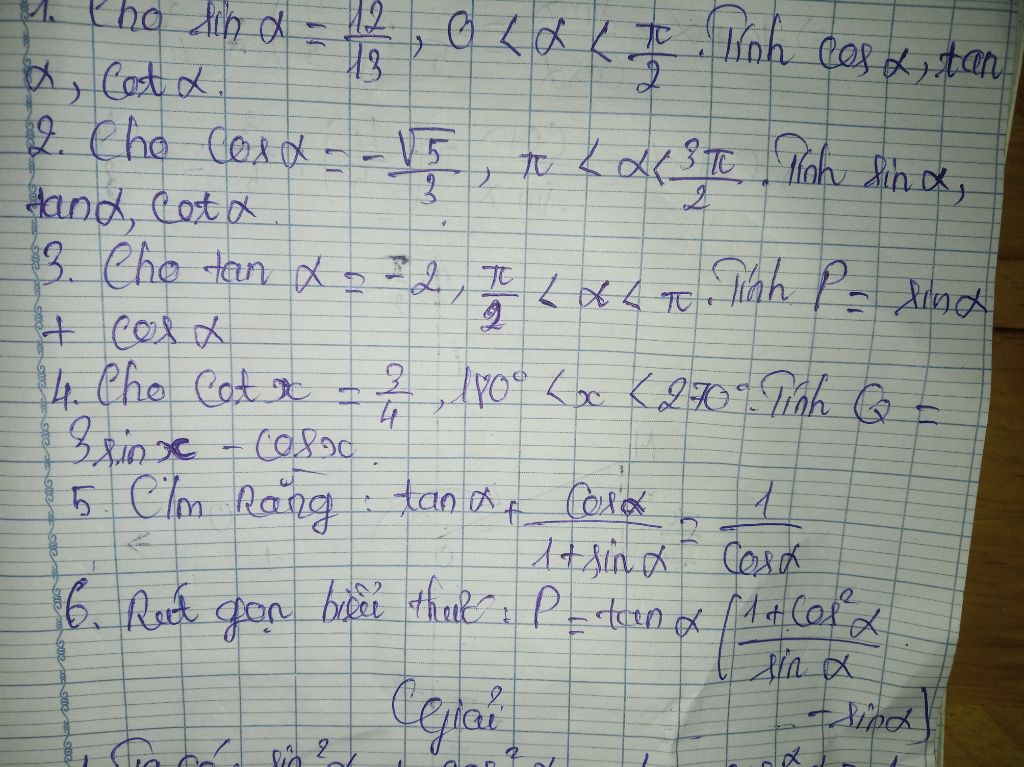 1. Cho sin α = 12/13, 0 < α < π/2. Tính cos α, tan
α, cot α.
2. Cho cos α = -√5/3, π < α < 3π/2. Tính sin α,
tan α, cot α.
3. Cho tan α = -2, π/2 < α < π. Tính P = sin α
+ cos α
4. Cho cot x = 3/4, 180° < x < 270°. Tính Q =
3 sin x - cos x.
5. C/m Rằng : tan α + cos α/(1 + sin α) = 1/cos α
6. Rút gọn biểu thức : P = tan α [(1 + cos² α)/sin α
- sin α]
Giải